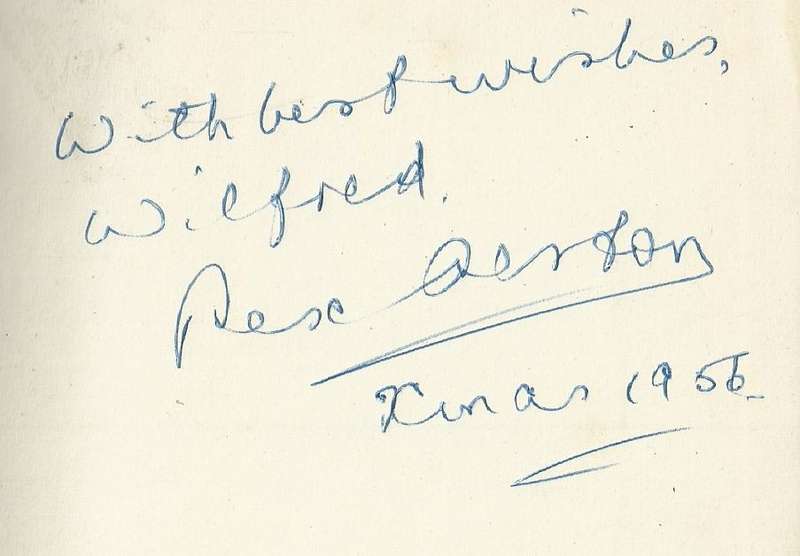 With best wishes,
Wilfred.
Rex Alston
Xmas 1956